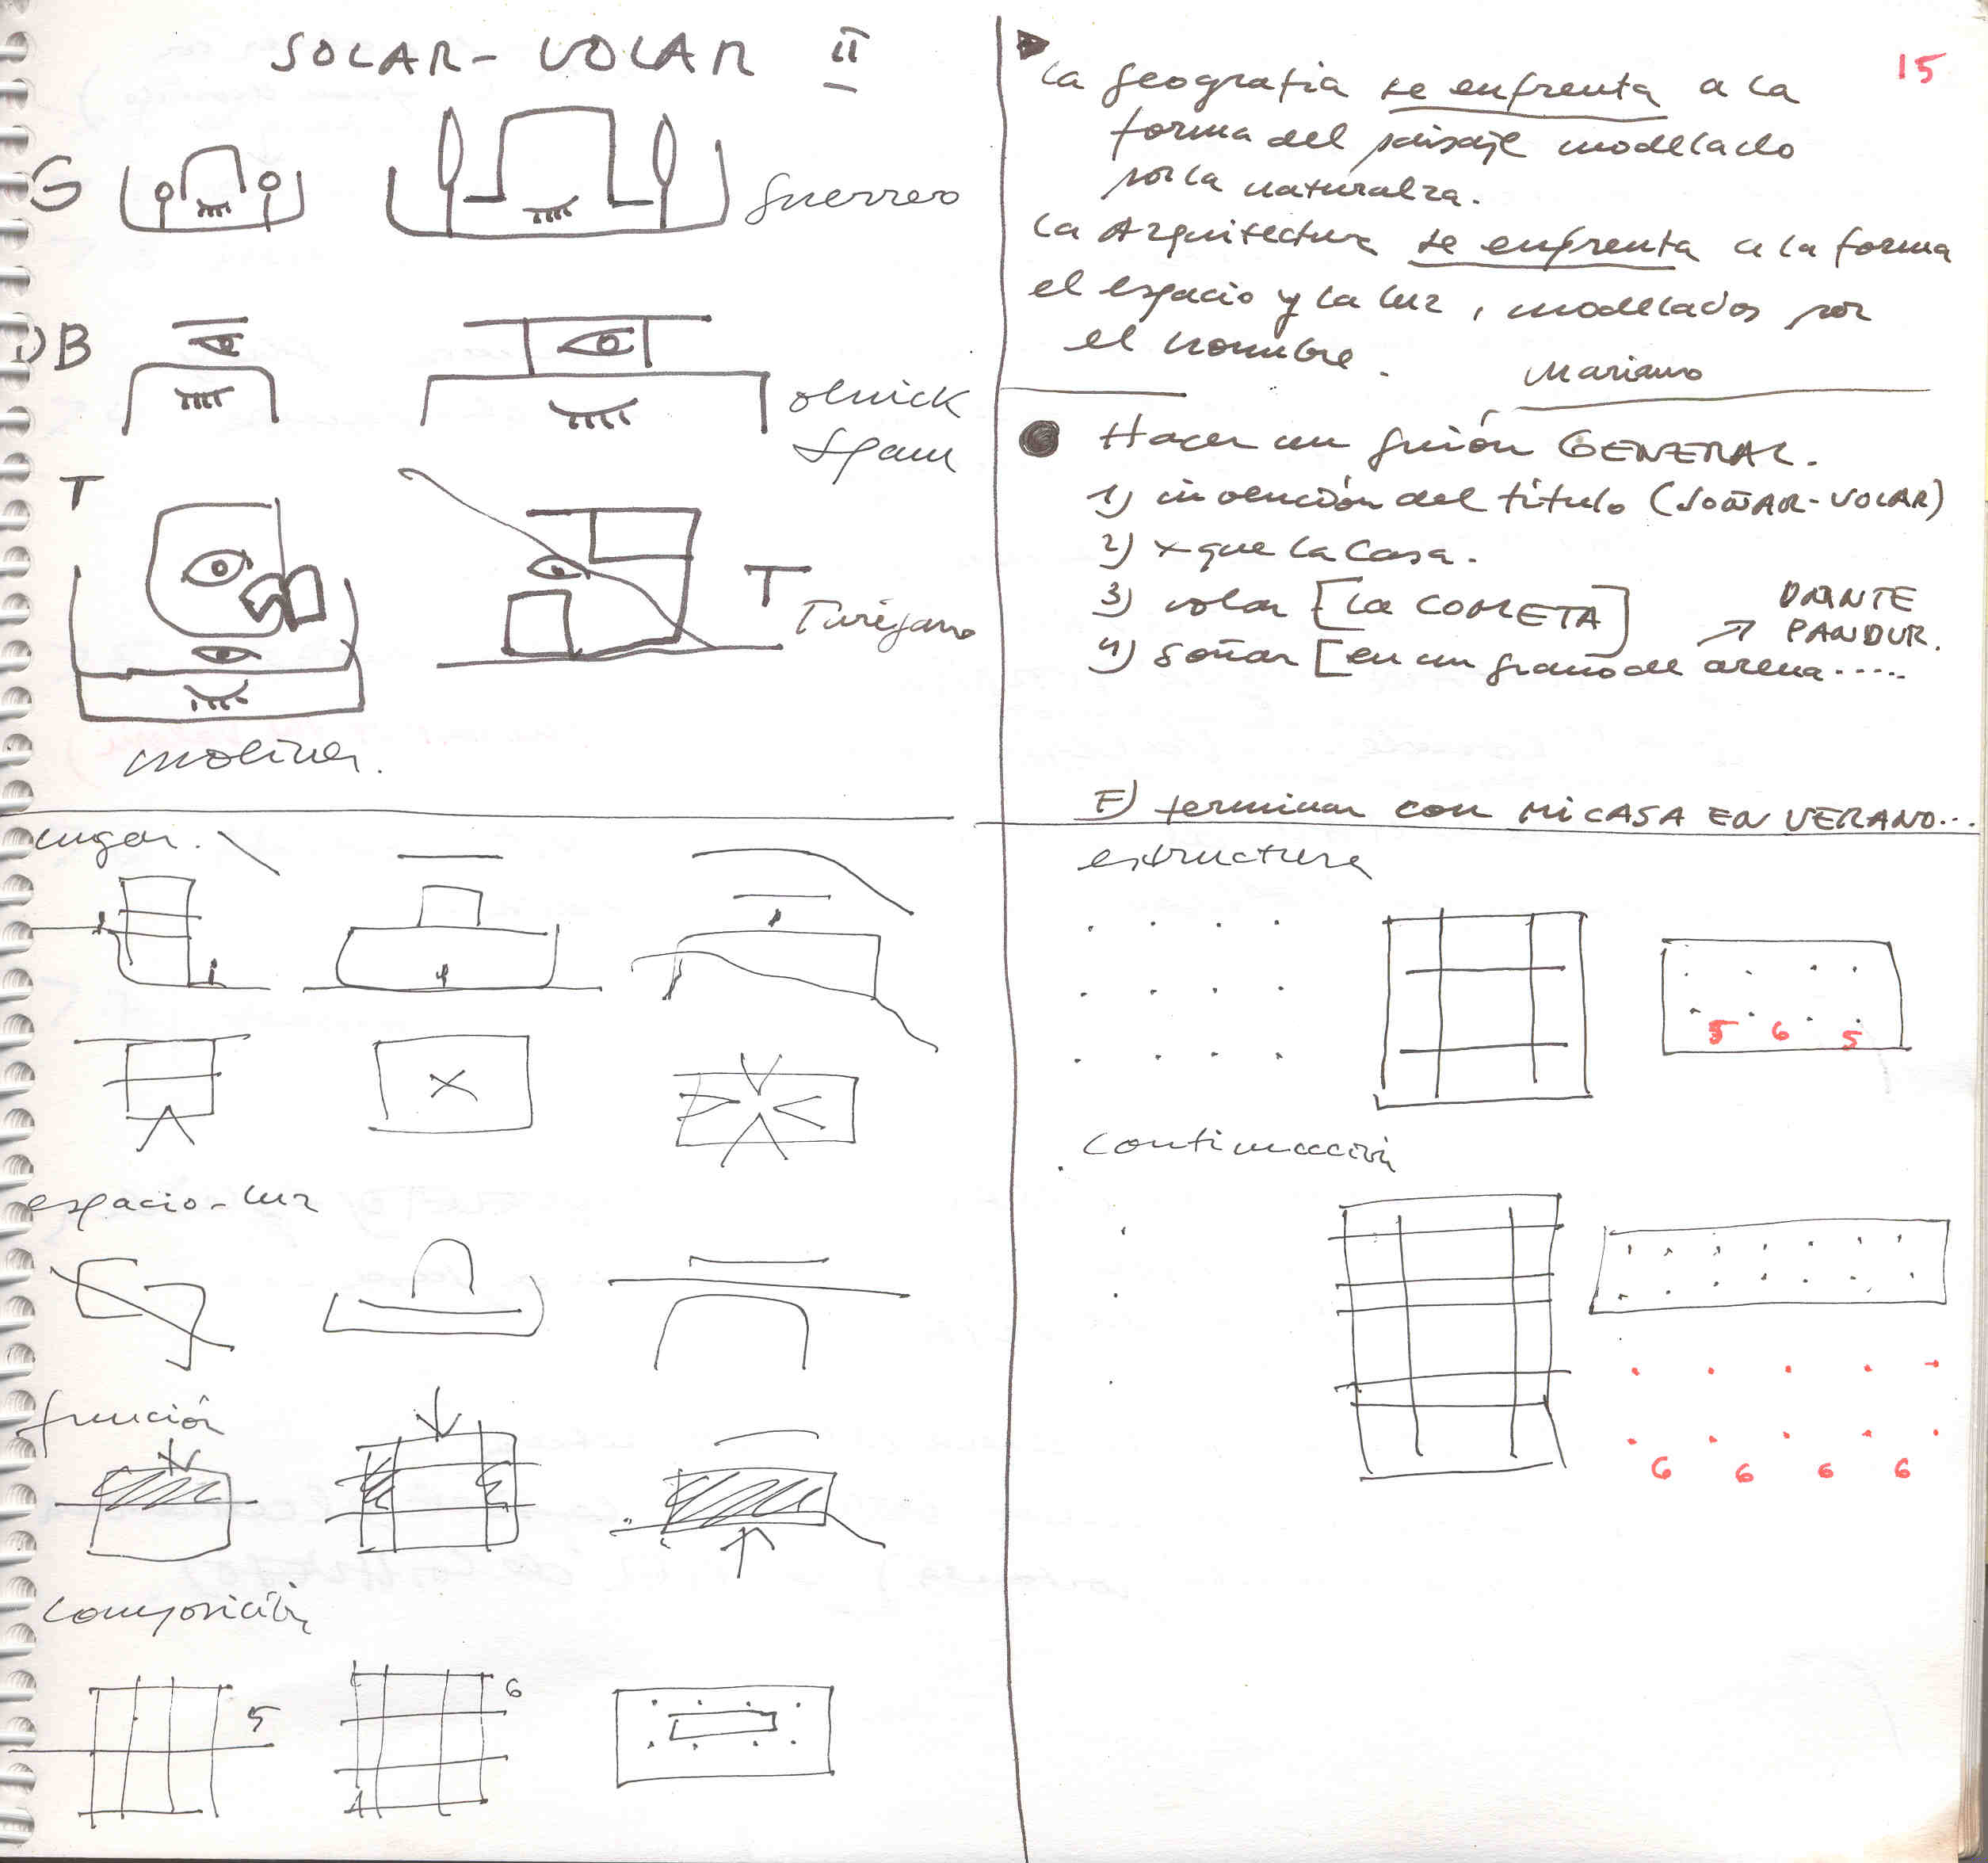 SOLAR - VOLAR II
G
guerrero
DB
olnick
Spanu
T
T
Turégano
moliner.
lugar.
espacio - luz
función
composición
5
6
15
La geografia se enfrenta a la
forma del paisaje modelado
por la naturalza.
La Arquitectura se enfrenta a la forma
el espacio y la luz, modelados por
el hombre.
Mariano
Hacer un guión GENERAL.
1) invención del título (SOÑAR-VOLAR)
2) x que la Casa.
3) volar [La COMETA]
DANTE
PANDUR.
4) soñar [en un grano de arena.....
F) terminar con MI CASA EN VERANO...
estructura
5 6 5
continuación
6 6 6 6